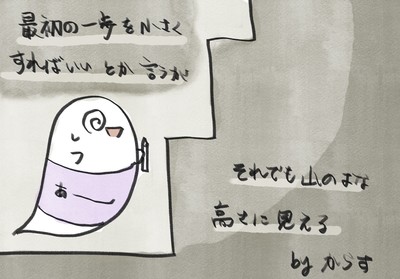 最初の一歩を小さく
すればいい とか 言うが
あー
それでも山のような
高さに見える
by からす